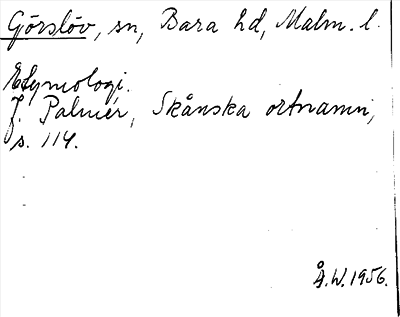 Görslöv, sn, Bara hd, Malm. l.
Etymologi.
J. Palmér, Skånska ortnamn,
s. 114.
Å.W. 1956.